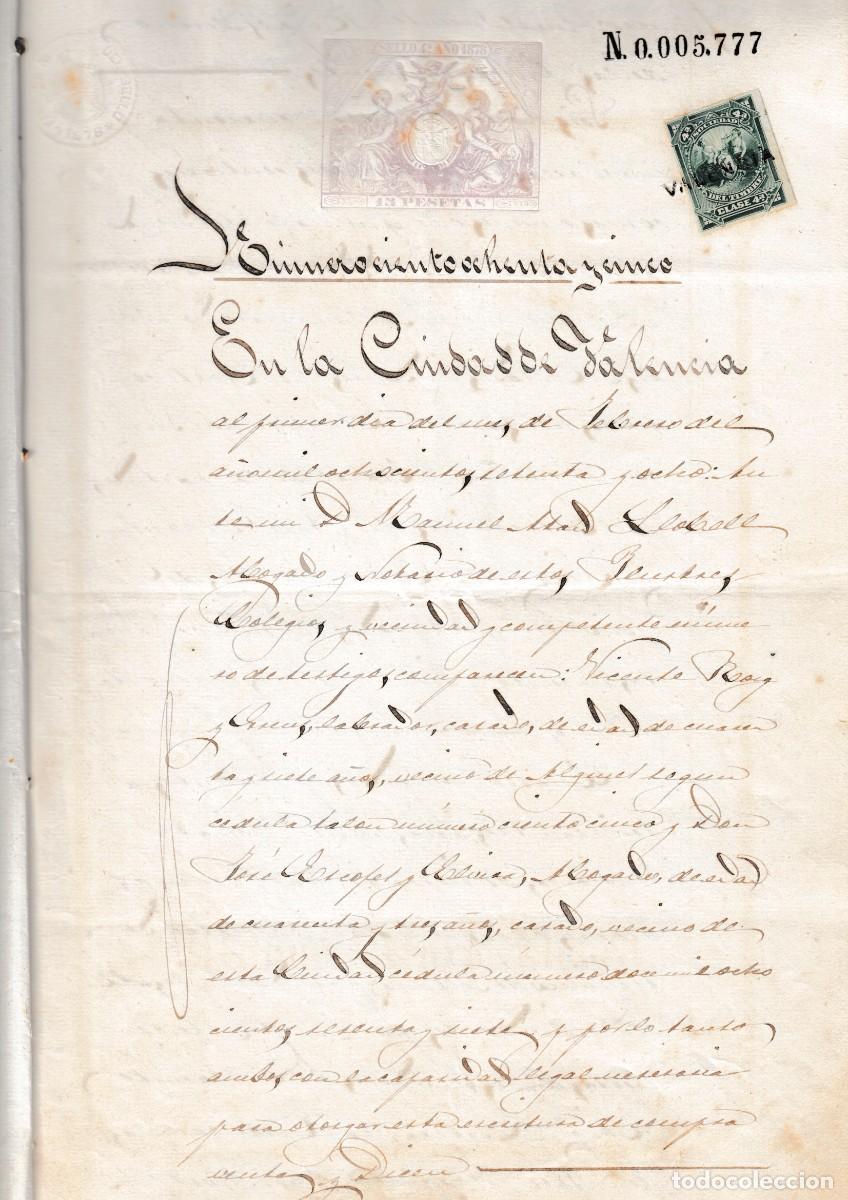 N. 0.005.777
SELLO 4º AÑO 1878
13 PESETAS
4ª 4ª
SOCIEDAD
DEL TIMBRE
CLASE 4ª
VALENCIA
Número ciento ochenta y cinco
En la Ciudad de Valencia
al primer dia del mes de Febrero del
año mil ochocientos setenta y ocho: An
te mi D Manuel Atard Llobell
Abogado y Notario de estos Ilustres
Colegios y vecindad y competente núme
ro de testigos comparecen: Vicente Roig
y labrador, casado, de edad de cuaren
ta y siete años, vecino de Alginet segun
cedula talon número ciento cinco y Don
José Escofet y Abogado, de edad
de cuarenta y tres años, casado, vecino de
esta Ciudad cédula número doce mil ocho
cientos sesenta y siete y por lo tanto
ambos con la capacidad legal necesaria
para otorgar esta escritura de compra
venta y Dicen
todocoleccion